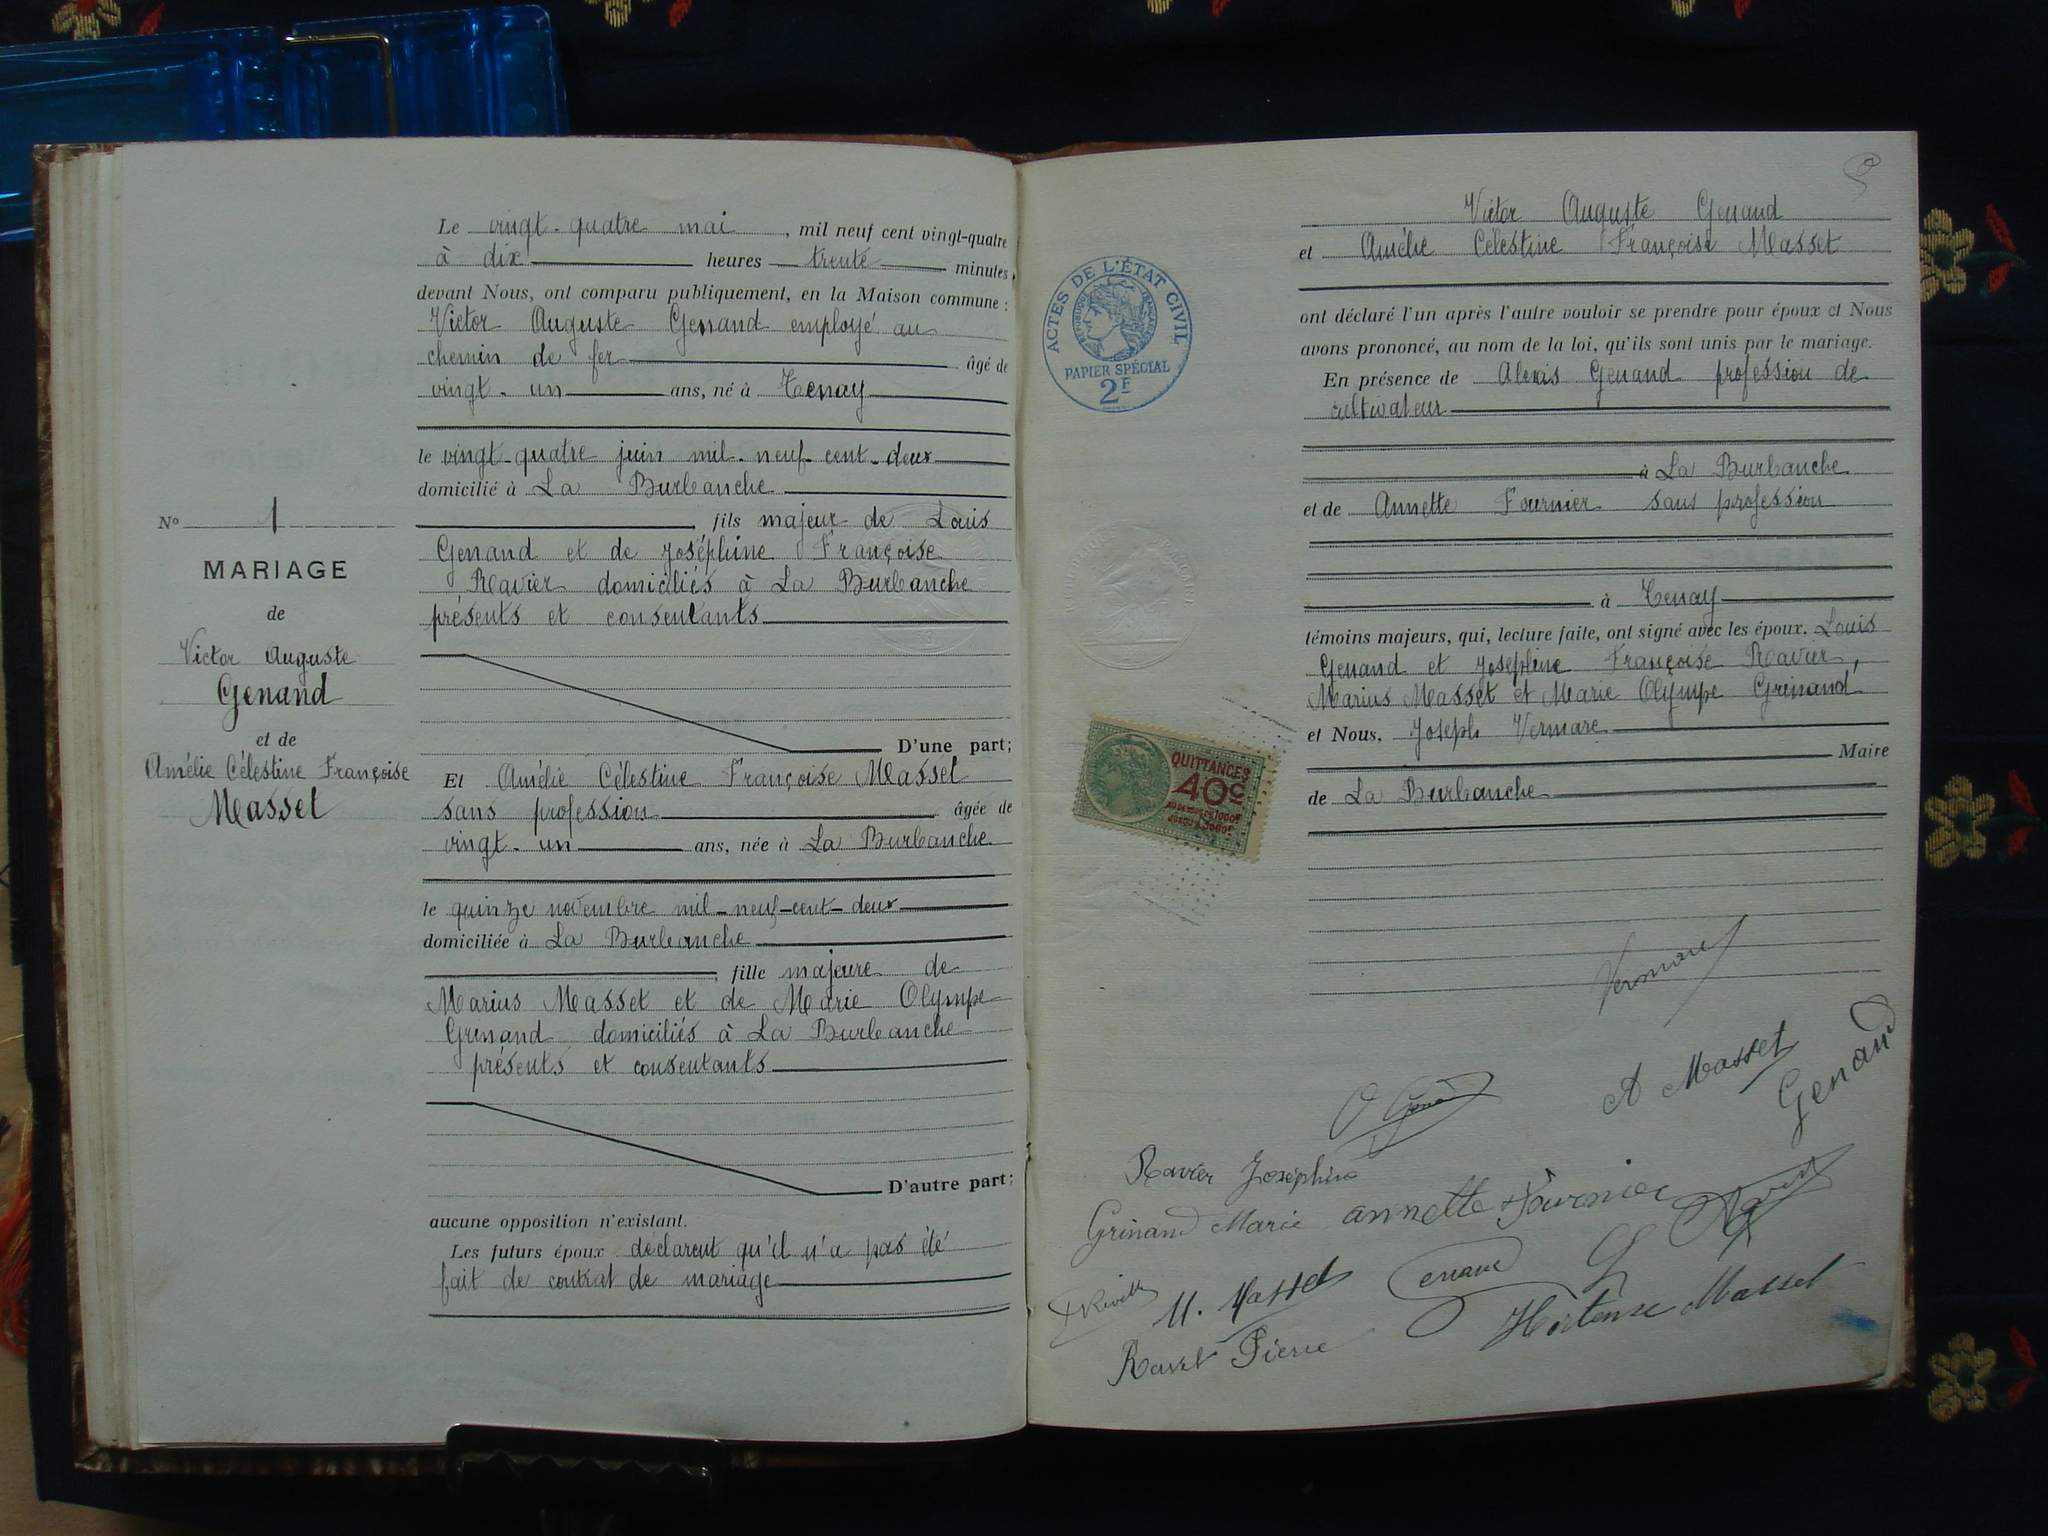 Le vingt-quatre mai, mil neuf cent vingt-quatre
à dix heures trente minutes,
devant Nous, ont comparu publiquement, en la Maison commune :
Victor Auguste Genand employé au
chemin de fer âgé de
vingt-un ans, né à Tenay
le vingt-quatre juin mil-neuf-cent-deux
domicilié à La Burbanche
, fils majeur de Louis
Genand et de Joséphine Françoise
Ravier domiciliés à La Burbanche
présents et consentants
D'une part;
Et Amélie Célestine Françoise Masset
sans profession âgée de
vingt-un ans, née à La Burbanche
le quinze novembre mil-neuf-cent-deux
domiciliée à La Burbanche
, fille majeure de
Marius Masset et de Marie Olympe
Grinand domiciliés à La Burbanche
présents et consentants
D'autre part;
aucune opposition n'existant.
Les futurs époux déclarent qu'il n'a pas été
fait de contrat de mariage
No 1
MARIAGE
de
Victor Auguste
Genand
et de
Amélie Célestine Françoise
Masset
Victor Auguste Genand
et Amélie Célestine Françoise Masset
ont déclaré l'un après l'autre vouloir se prendre pour époux et Nous
avons prononcé, au nom de la loi, qu'ils sont unis par le mariage.
En présence de Alexis Genand profession de
cultivateur
à La Burbanche
et de Annette Fournier sans profession
à Tenay
témoins majeurs, qui, lecture faite, ont signé avec les époux. Louis
Genand et Joséphine Françoise Ravier,
Marius Masset et Marie Olympe Grinand
et Nous, Joseph Vermare
Maire
de La Burbanche
ACTES DE L'ÉTAT CIVIL
RÉPUBLIQUE FRANÇAISE
PAPIER SPÉCIAL
2F
QUITTANCES
40c
Vermare
A Masset
Genand
Ravier Joséphine
Grinand Marie annette Fournier
M. Masset
Hortense Masset
Ravet Pierre